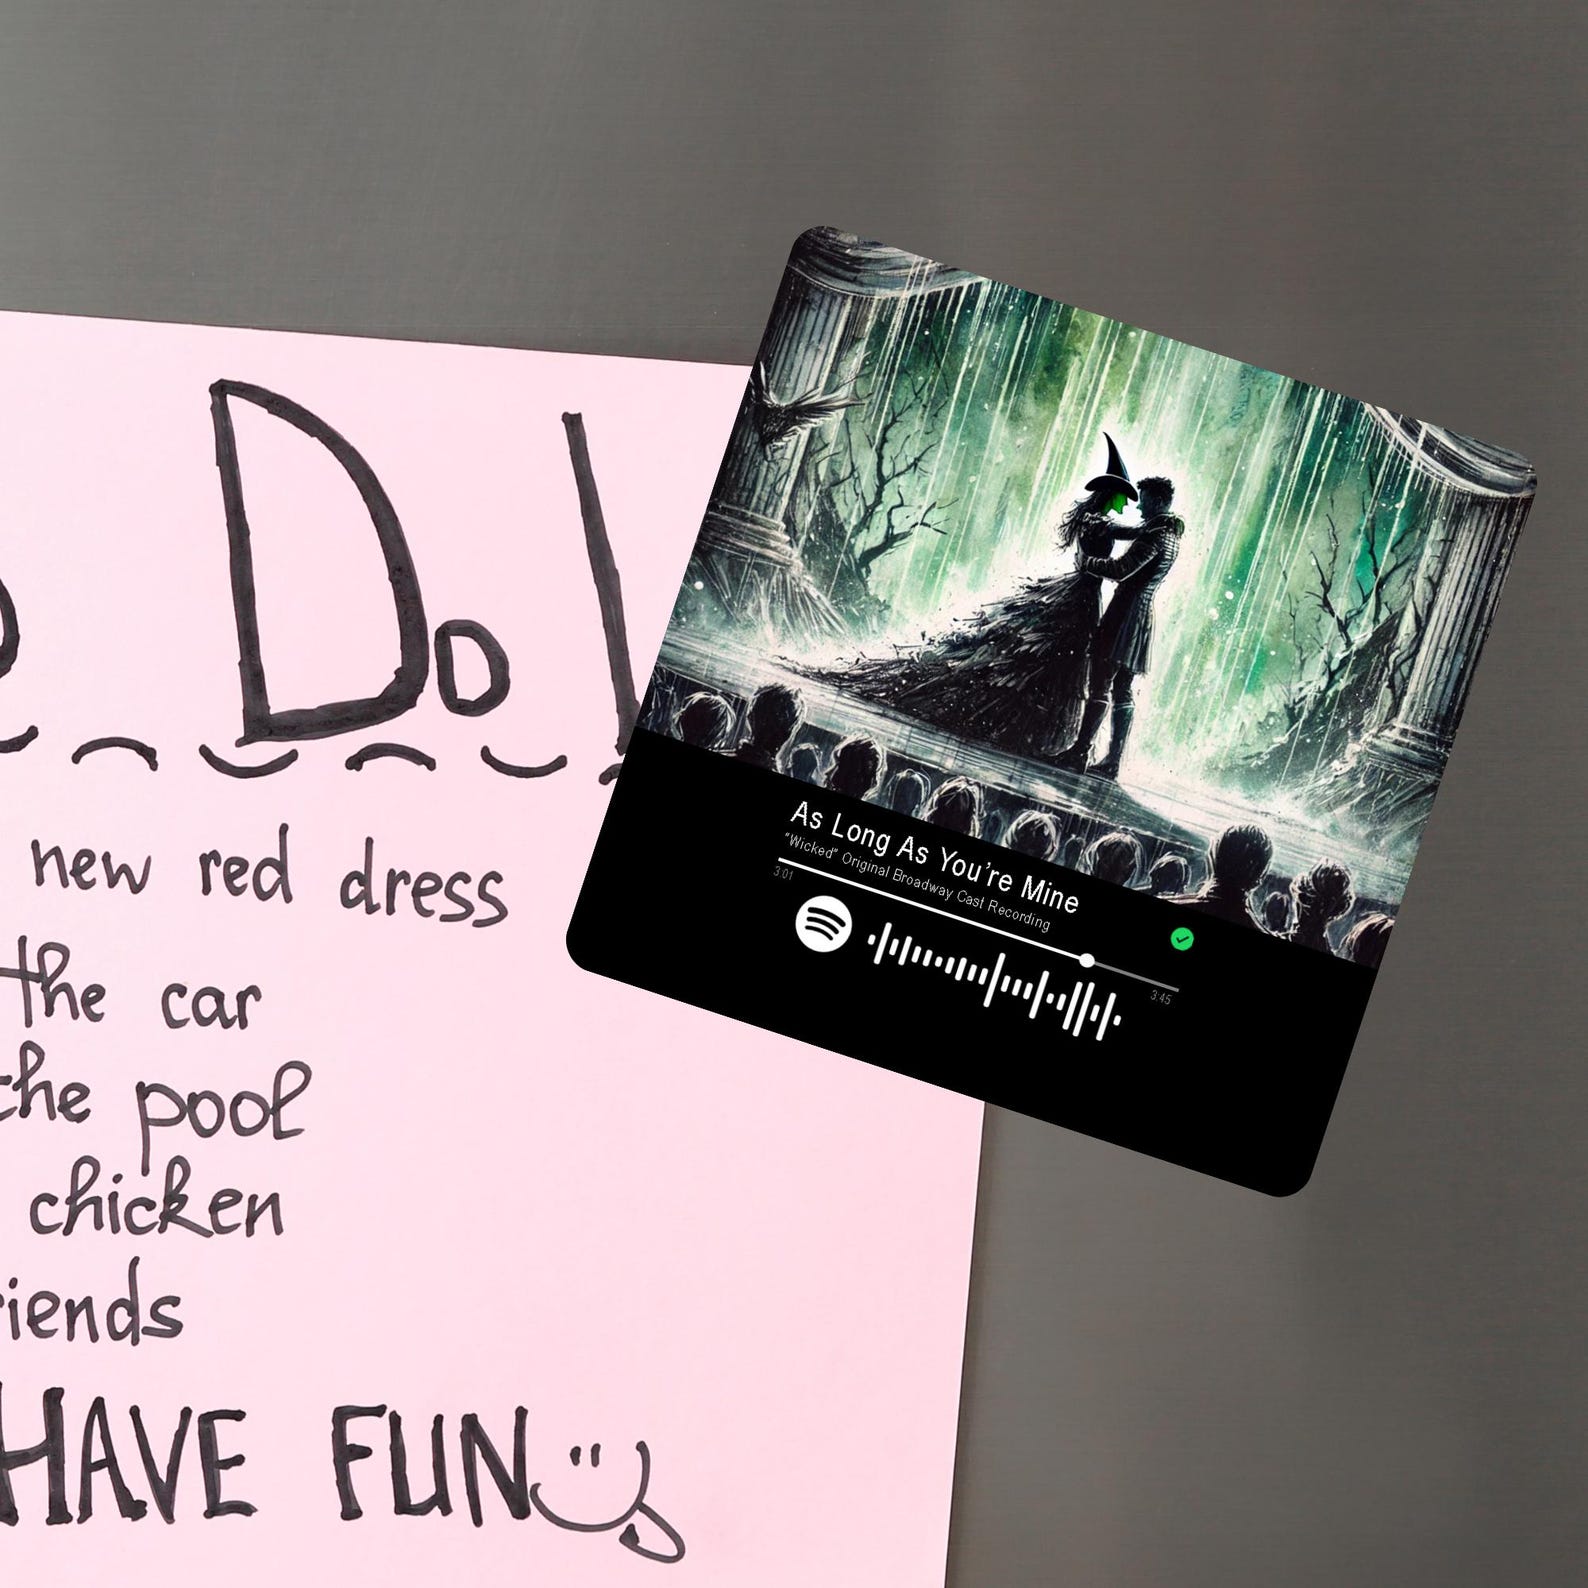 Do
new red dress
the car
the pool
chicken
HAVE FUN
As Long As You're Mine
"Wicked" Original Broadway Cast Recording
3:01
3:45